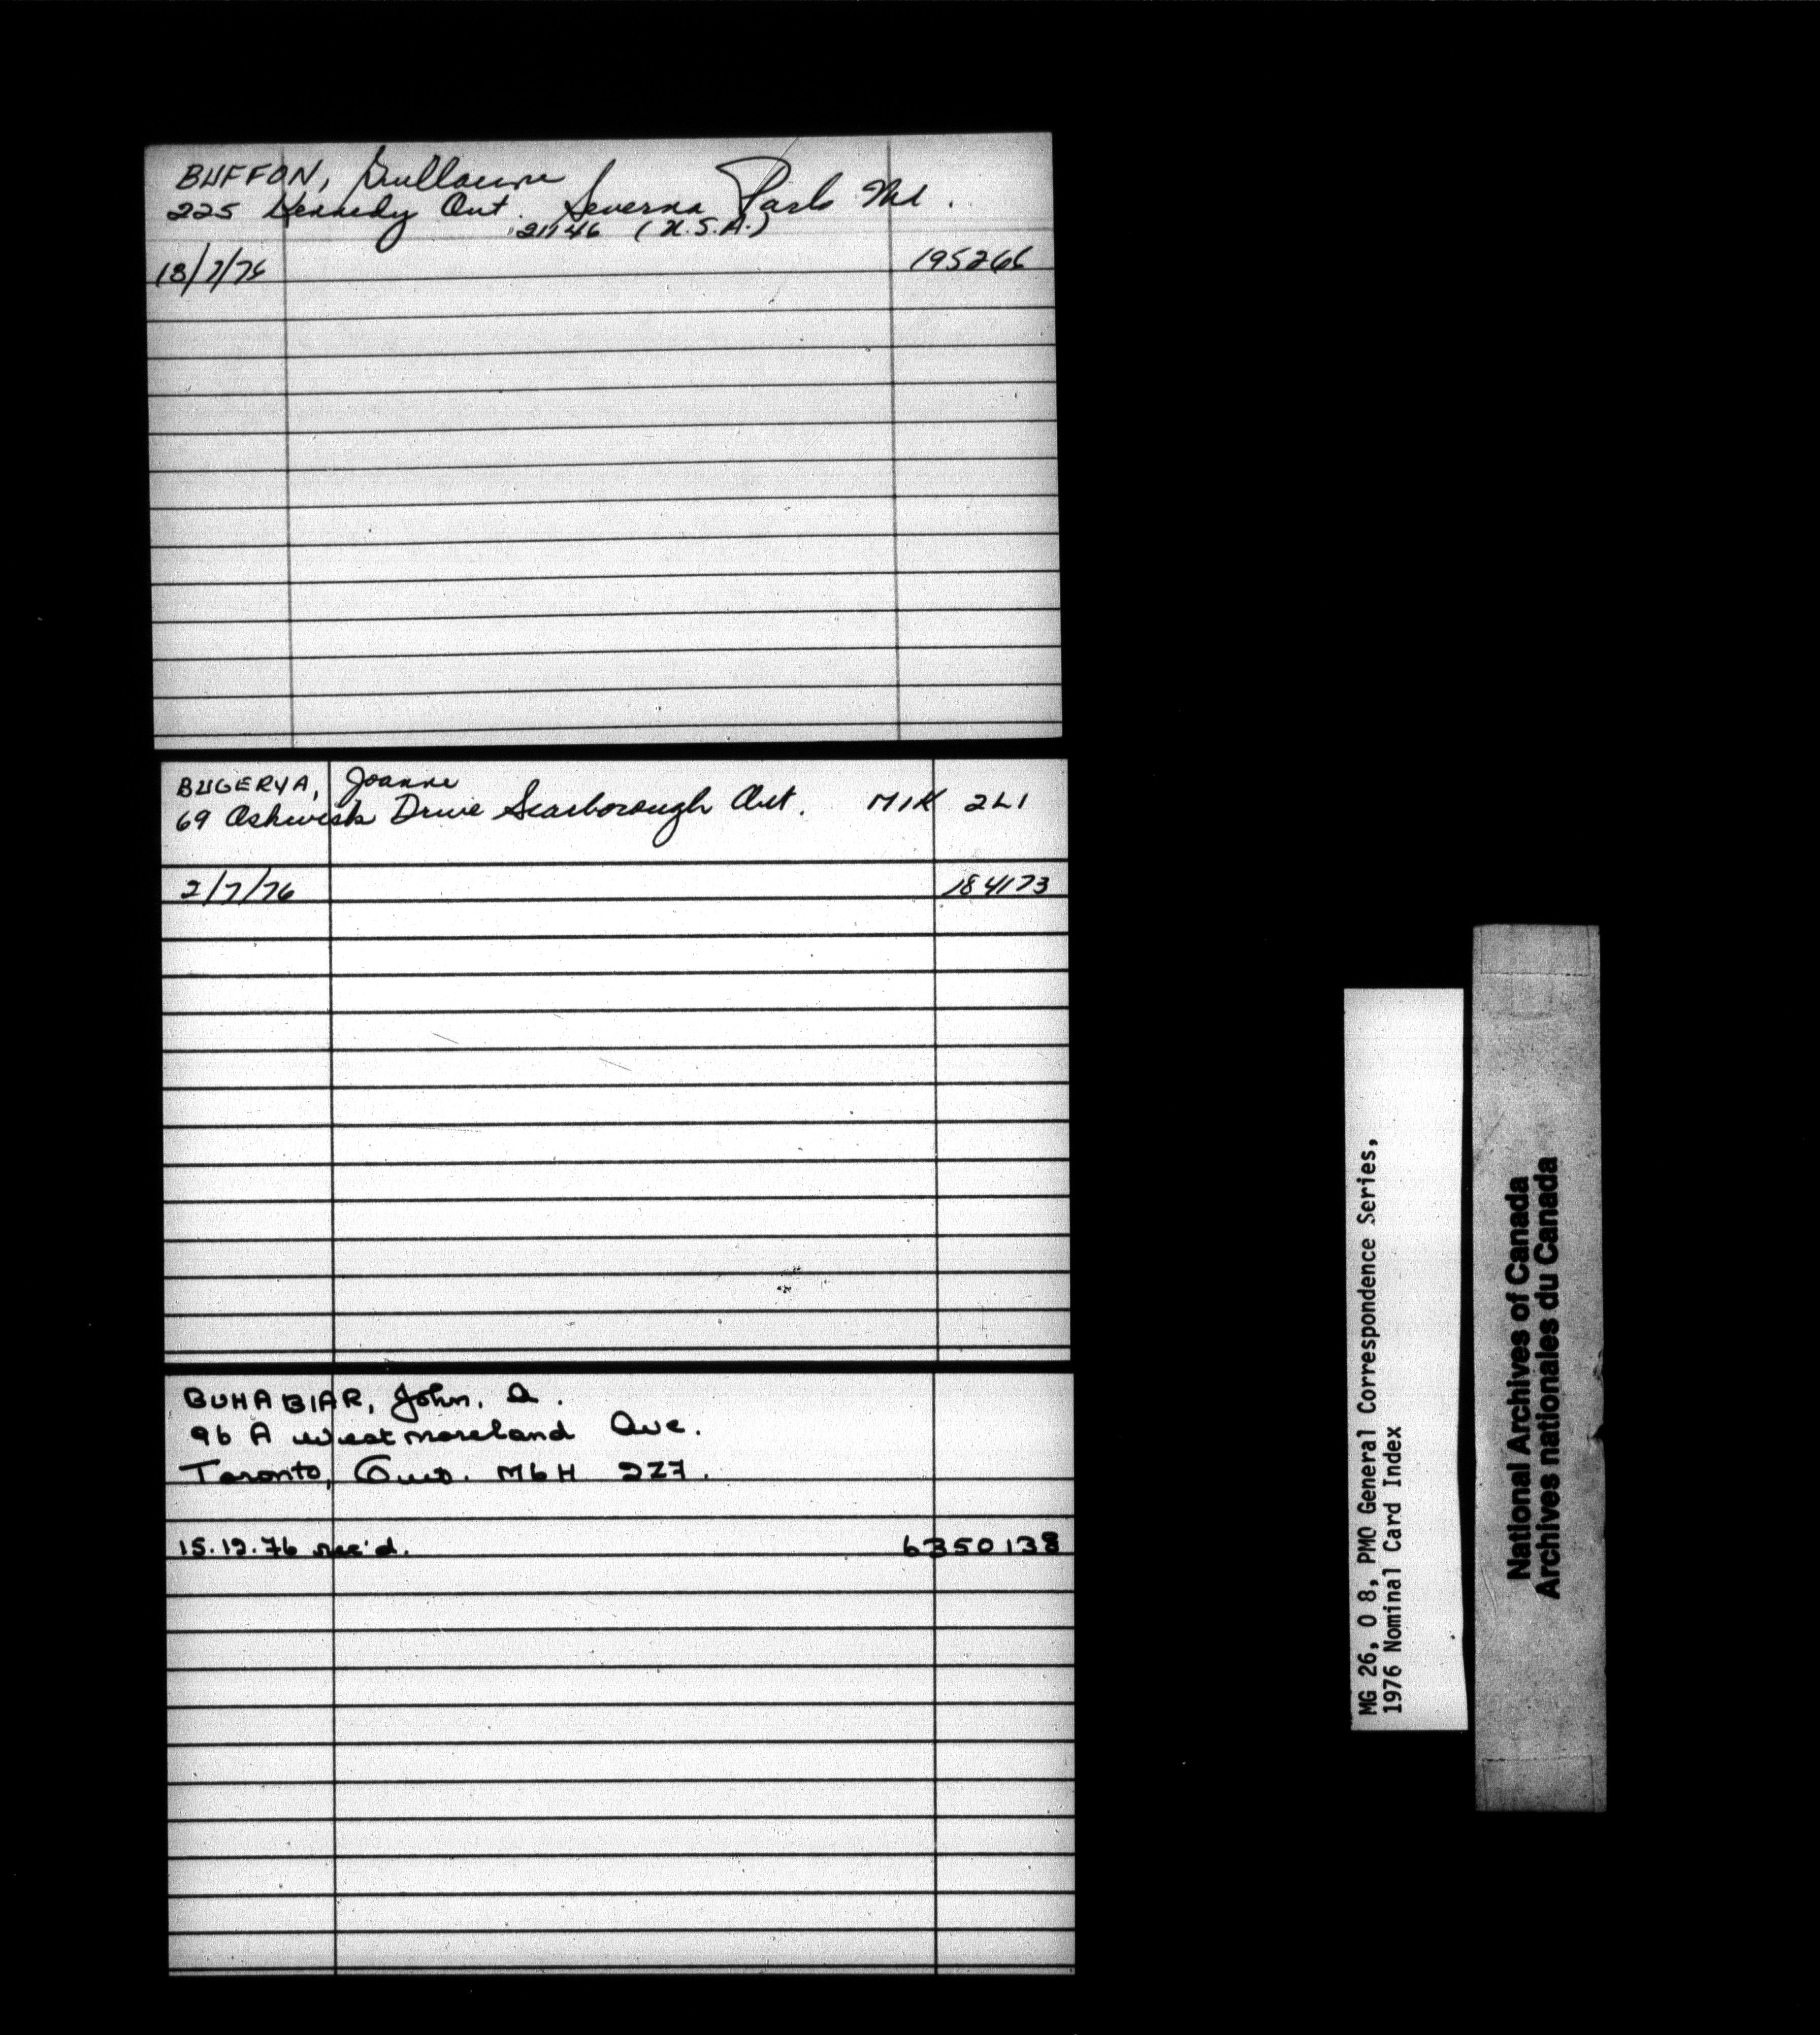 BUFFON, Guillaume
225 Kennedy Ont. Severna Park Md.
21146 (U.S.A.)
18/7/76 195266
BUGERYA, Joanne
69 Ashwick Drive Scarborough Ont. M1K 2L1
2/7/76 184173
BUHABIAR, John. A.
96 A Westmoreland Ave.
Toronto, Ont. M6H 2Z7.
15.12.76 rec'd. 6350138
MG 26, O 8, PMO General Correspondence Series,
1976 Nominal Card Index
National Archives of Canada
Archives nationales du Canada